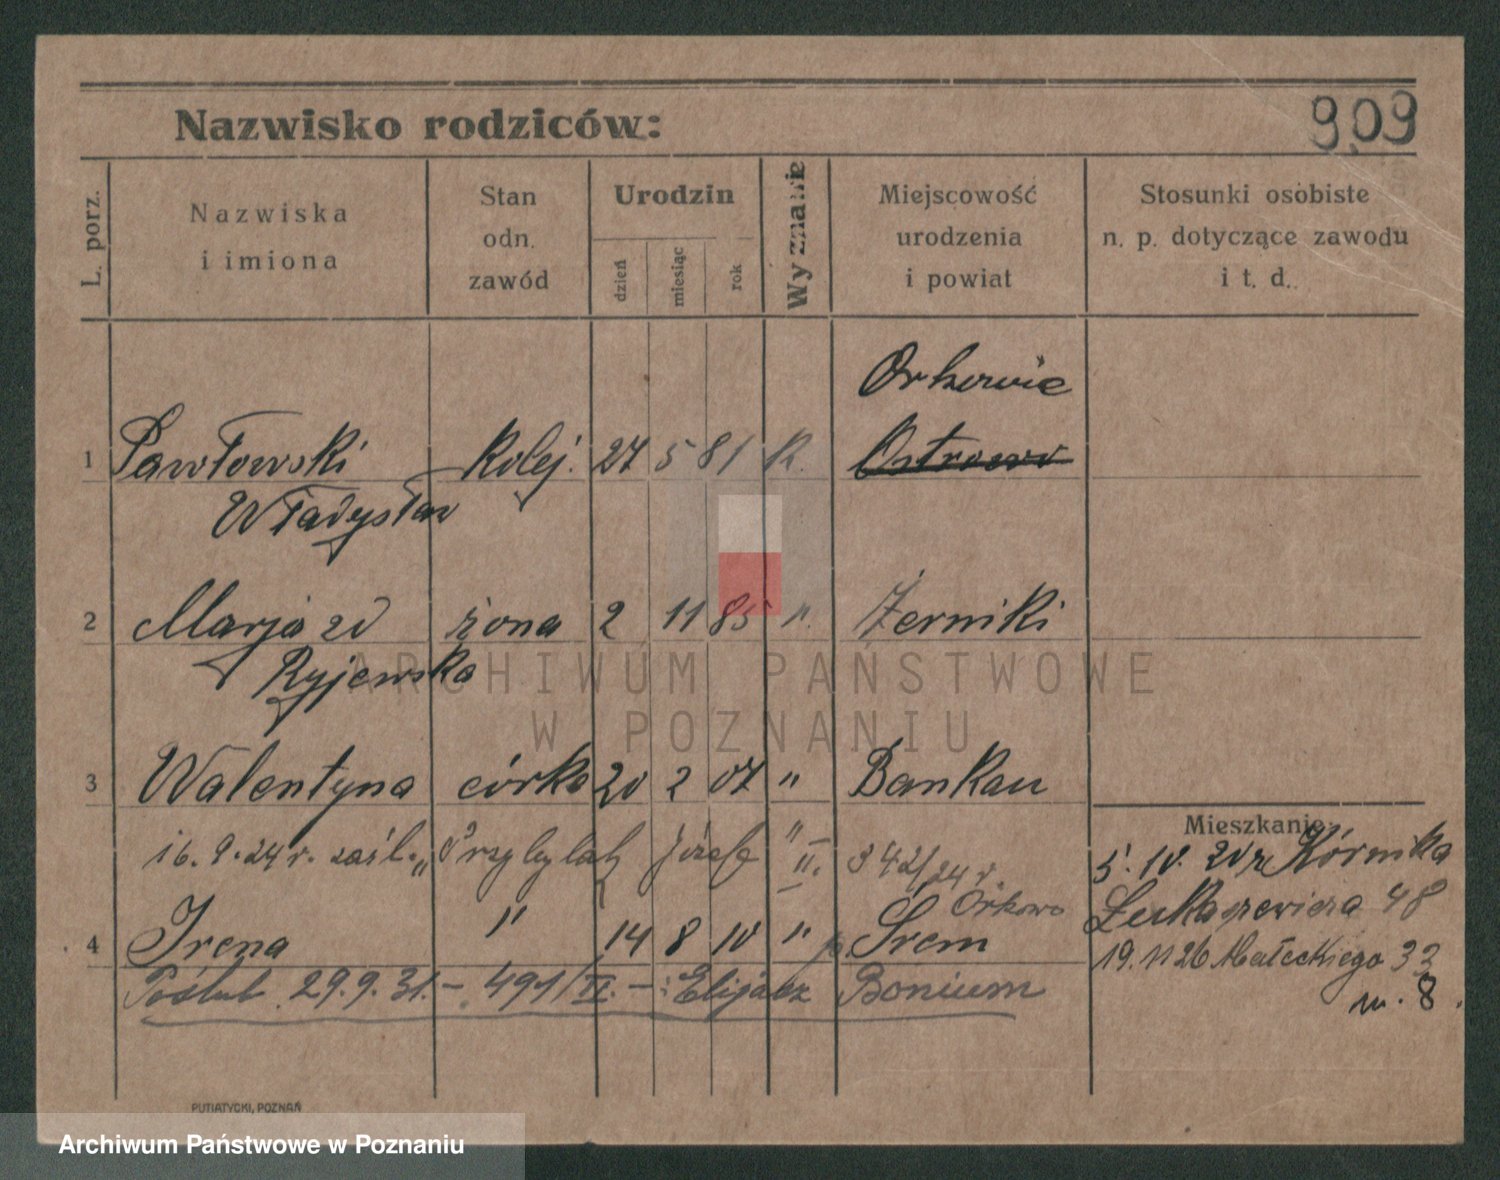 Nazwisko rodziców:
909
L. porz.
Nazwiska
i imiona
Stan
odn.
zawód
Urodzin
dzień
miesiąc
rok
Wyznanie
Miejscowość
urodzenia
i powiat
Stosunki osobiste
n. p. dotyczące zawodu
i t. d.
1 Pawłowski Kolej. 27 5 81 K. Ostrowo
Władysław
2 Marja zd żona 2 11 85 ". Żerniki
Ryjewska
3 Walentyna córka 20 2 07 " Bankau
16.9.24 r. zaśl. " Przybylak Józefa " II. 342/24 r.
Orkowo
4 Irena " 14 8 10 " Śrem
Poślub 29.9.31. - 491/II. - : Elijasz Bonium
Mieszkanie:
5. 10. 20 z Kórnika
Łukaszewicza 48
19.11 26 Małeckiego 33
m. 8.
PUTIATYCKI, POZNAŃ
ARCHIWUM PAŃSTWOWE
W POZNANIU
Archiwum Państwowe w Poznaniu